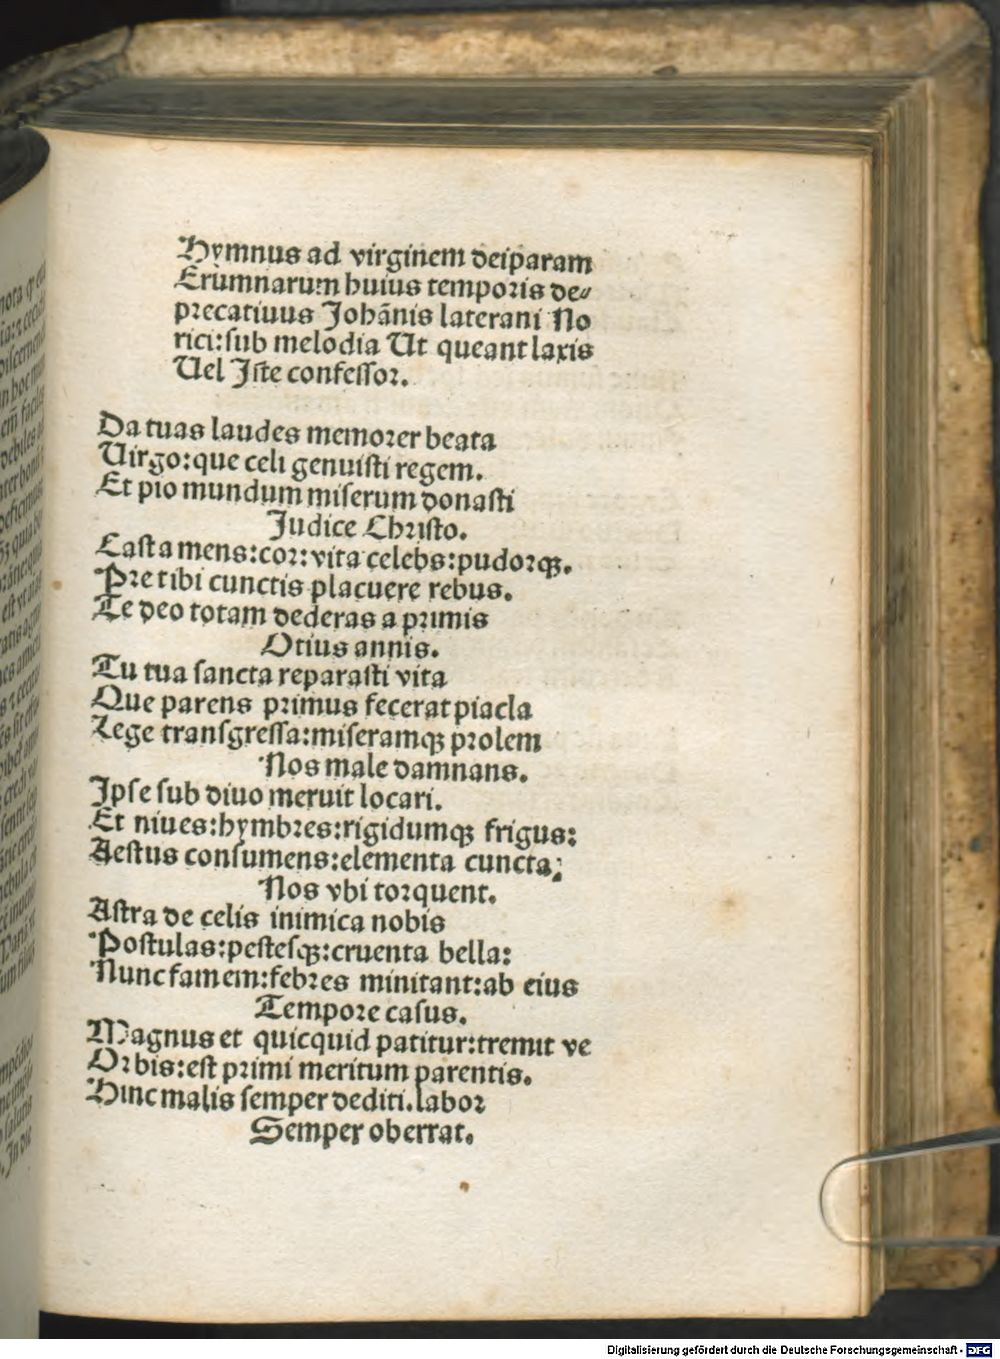 Hymnus ad virginem deiparam
Erumnarum huius temporis de⸗
precatiuus Johānis laterani No
rici:sub melodia Ut queant laxis
Uel Iste confessor.
Da tuas laudes memorer beata
Uirgo:que celi genuisti regem.
Et pio mundum miserum donasti
Judice Christo.
Casta mens:cor:vita celebs:pudorqꝫ.
Pre tibi cunctis placuere rebus.
Te deo totam dederas a primis
Ocius annis.
Tu tua sancta reparasti vita
Que parens primus fecerat piacla
Lege transgressa:miseramqꝫ prolem
Nos male damnans.
Ipse sub diuo meruit locari.
Et niues:hymbres:rigidumqꝫ frigus:
Aestus consumens:elementa cuncta:
Nos vbi torquent.
Astra de celis inimica nobis
Postulas:pestesqꝫ:cruenta bella:
Nunc famem:febres minitant:ab eius
Tempore casus.
Magnus et quicquid patitur:tremit ve
Orbis:est primi meritum parentis.
Hinc malis semper dediti.labor
Semper oberrat.
Digitalisierung gefördert durch die Deutsche Forschungsgemeinschaft - DFG